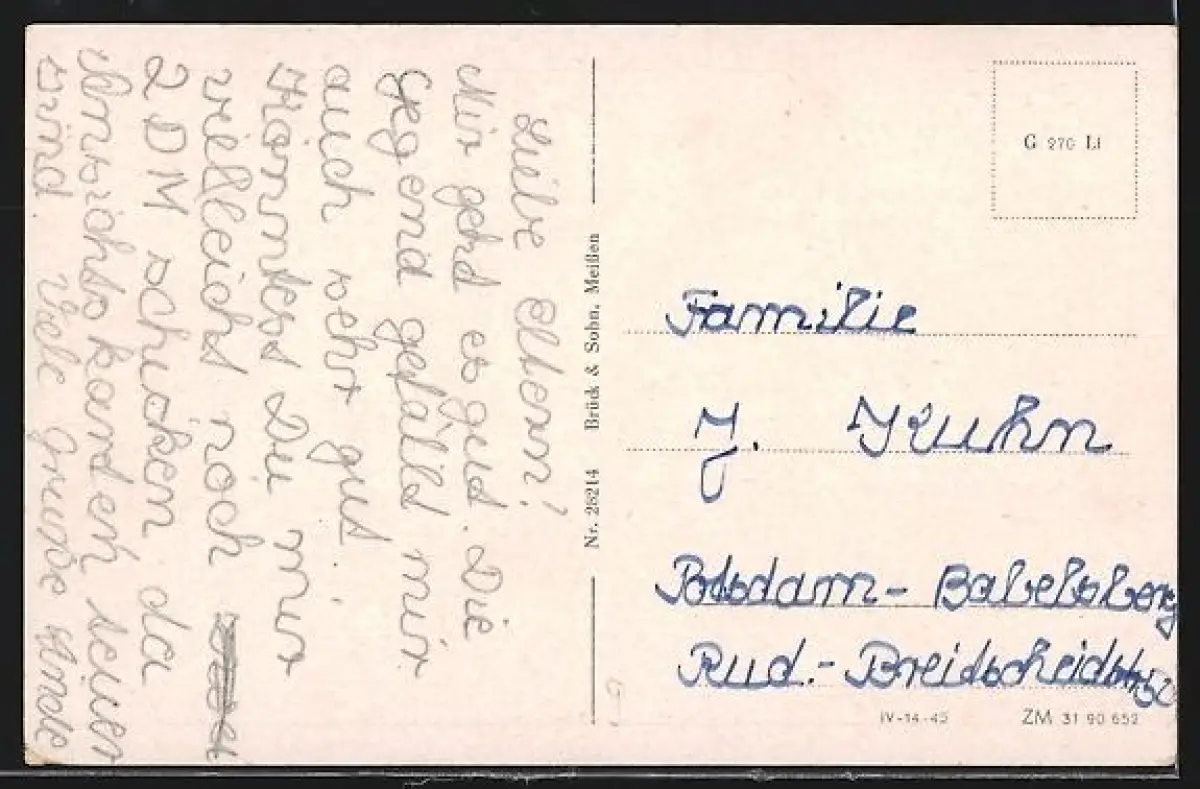 Liebe Eltern!
Mir gehd es gud. Die
Gegend gefälld mir
auch sehr gud.
Könntest Du mir
vielleichd noch
2 DM schicken da
Ansichtskarden teuer
sind. Viele Grüße
Nr. 28214 Brück & Sohn, Meißen
G 270 Li
Familie
J. Kuhn
Potsdam-Babelsberg
Rud.-Breidscheidstr 52
IV-14-45 ZM 31 90 652